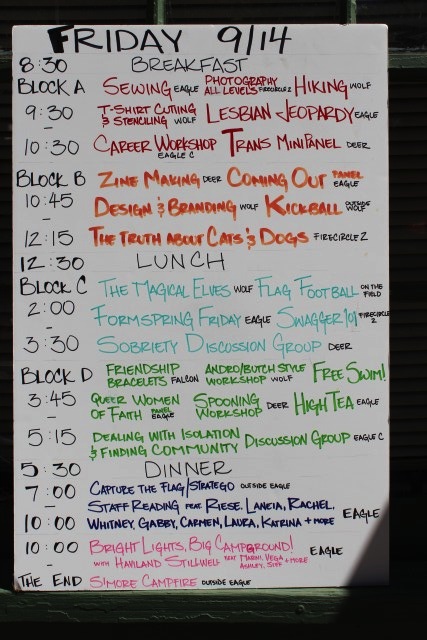 FRIDAY 9/14
8:30 BREAKFAST
BLOCK A SEWING EAGLE PHOTOGRAPHY ALL LEVELS FIRECIRCLE 2 HIKING WOLF
9:30 T-SHIRT CUTING & STENCILING WOLF LESBIAN JEOPARDY EAGLE
–
10:30 CAREER WORKSHOP EAGLE C TRANS MINI PANEL DEER
BLOCK B ZINE MAKING DEER COMING OUT PANEL EAGLE
10:45 DESIGN & BRANDING WOLF KICKBALL OUTSIDE WOLF
–
12:15 THE TRUTH ABOUT CATS & DOGS FIRECIRCLE 2
12:30 LUNCH
BLOCK C THE MAGICAL ELVES WOLF FLAG FOOTBALL ON THE FIELD
2:00 FORMSPRING FRIDAY EAGLE SWAGGER 101 FIRECIRCLE 2
–
3:30 SOBRIETY DISCUSSION GROUP DEER
BLOCK D FRIENDSHIP BRACELETS FALCON ANDRO/BUTCH STYLE WORKSHOP WOLF FREE SWIM!
3:45 QUEER WOMEN OF FAITH PANEL EAGLE SPOONING WORKSHOP DEER HIGH TEA EAGLE
–
5:15 DEALING WITH ISOLATION & FINDING COMMUNITY DISCUSSION GROUP EAGLE C
5:30 DINNER
7:00 CAPTURE THE FLAG/STRATEGO OUTSIDE EAGLE
–
STAFF READING FEAT. RIESE, LANEIA, RACHEL,
10:00 WHITNEY, GABBY, CARMEN, LAURA, KATRINA + MORE EAGLE
10:00 BRIGHT LIGHTS, BIG CAMPGROUND! EAGLE
–
WITH HAVILAND STILLWELL FEAT MARNI, VEGA ASHLEY, + MORE
THE END S'MORE CAMPFIRE OUTSIDE EAGLE